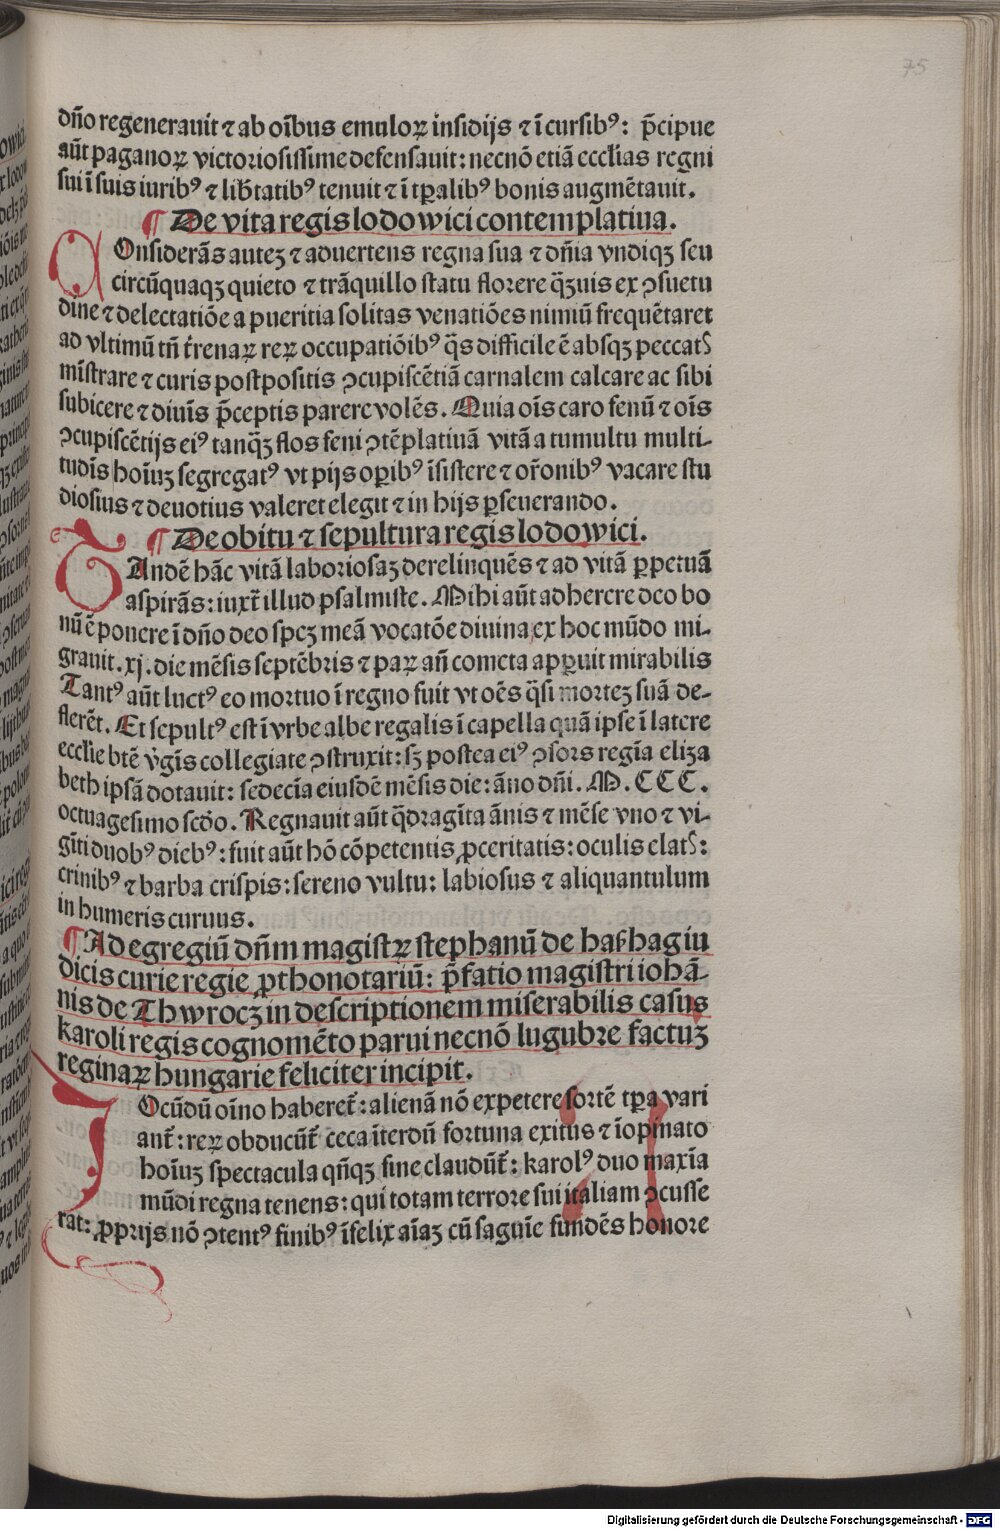 75
dño regenerauit ⁊ ab oı̄bus emuloꝝ insidijs ⁊ ı̄cursibꝰ: p̄cipue
aūt paganoꝝ victoriosissime defensauit: necnō etiā ecclīas regni
sui ī suis iuribꝰ ⁊ lib̄tatibꝰ tenuit ⁊ ī tꝑalibꝰ bonis augmētauit.
¶ De vita regis lodowici contemplatiua.
COnsiderās autez ⁊ aduertens regna sua ⁊ dñia vndiqꝫ seu
circūquaqꝫ quieto ⁊ trāquillo statu florere q̄ꝫuis ex ꝯsuetu
dine ⁊ delectatiōe a pueritia solitas venatiōes nimiū frequētaret
ad vltimū tñ t̄renaꝝ reꝝ occupatiōibꝰ q̄s difficile ē absqꝫ peccatꝭ
mīstrare ⁊ curis postpositis ꝯcupiscētiā carnalem calcare ac sibi
subicere ⁊ diuīs p̄ceptis parere volēs. Quia oīs caro fenū ⁊ oīs
ꝯcupiscētijs eiꝰ tanq̄ꝫ flos feni ꝯtēplatiuā vitā a tumultu multi-
tudīs hoīuꝫ segregatꝰ vt pijs oꝑibꝰ īsistere ⁊ or̄onibꝰ vacare stu
diosius ⁊ deuotius valeret elegit ⁊ in hijs ꝑseuerando.
¶ De obitu ⁊ sepultura regis lodowici.
TAndē hāc vitā laboriosaꝫ derelinquēs ⁊ ad vitā ꝑpetuā
aspirās: iuxt̄ illud psalmiste. Mihi aūt adherere deo bo
nū ē ponere ī dño deo speꝫ meā vocatōe diuina ex hoc mūdo mi-
grauit .xj. die mēsis septēbris ⁊ paꝝ añ cometa apꝑuit mirabilis
Tantꝰ aūt luctꝰ eo mortuo ī regno fuit vt oēs q̄si mortez suā de-
flerēt. Et sepultꝰ est ī vrbe albe regalis ī capella quā ipse ī latere
ecclīe btē v̄gīs collegiate ꝯstruxit: sꝫ postea eiꝰ ꝯsors regīa eliza
beth ipsā dotauit: sedecīa eiusdē mēsis die: āno dñi. M.CCC.
octuagesimo scd̄o. Regnauit aūt q̄dragīta ānis ⁊ mēse vno ⁊ vi-
gīti duobꝰ diebꝰ: fuit aūt hō cōpetentis ꝓceritatis: oculis elatꝭ:
crinibꝰ ⁊ barba crispis: sereno vultu: labiosus ⁊ aliquantulum
in humeris curuus.
¶ Ad egregiū dñm magistꝝ stephanū de haßhag iu
dicis curie regie ꝓthonotariū: p̄fatio magistri iohā-
nis de Thwrocz in descriptionem miserabilis casus
karoli regis cognomēto parui necnō lugubre factuꝫ
reginaꝝ hungarie feliciter incipit.
IOcūdū oīno haberet̄: alienā nō expetere sortē tꝑa vari
ant̄: reꝝ obducūt̄ ceca īterdū fortuna exitus ⁊ īopinato
hoīuꝫ spectacula qñqꝫ fine claudūt̄: karolꝰ duo maxīa
mūdi regna tenens: qui totam terrore sui italiam ꝯcusse
rat: ꝓprijs nō ꝯtentꝰ finibꝰ īfelix aīaꝫ cū saguīe fundēs honore
Digitalisierung gefördert durch die Deutsche Forschungsgemeinschaft - DFG